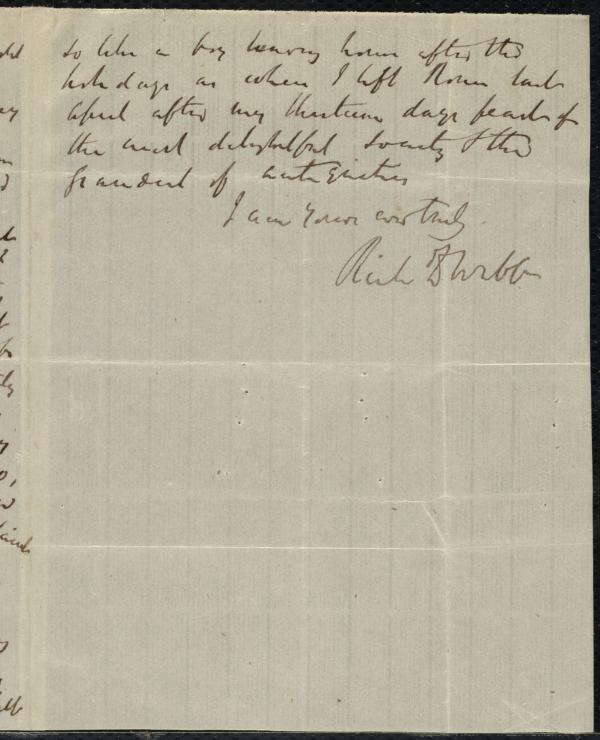 so like a boy leaving home after the
holidays as when I left Rome last
April after my thirteen days feast of
the most delightful society & the
grandest of antiquities
I am yours ever truly
Rich D Webb